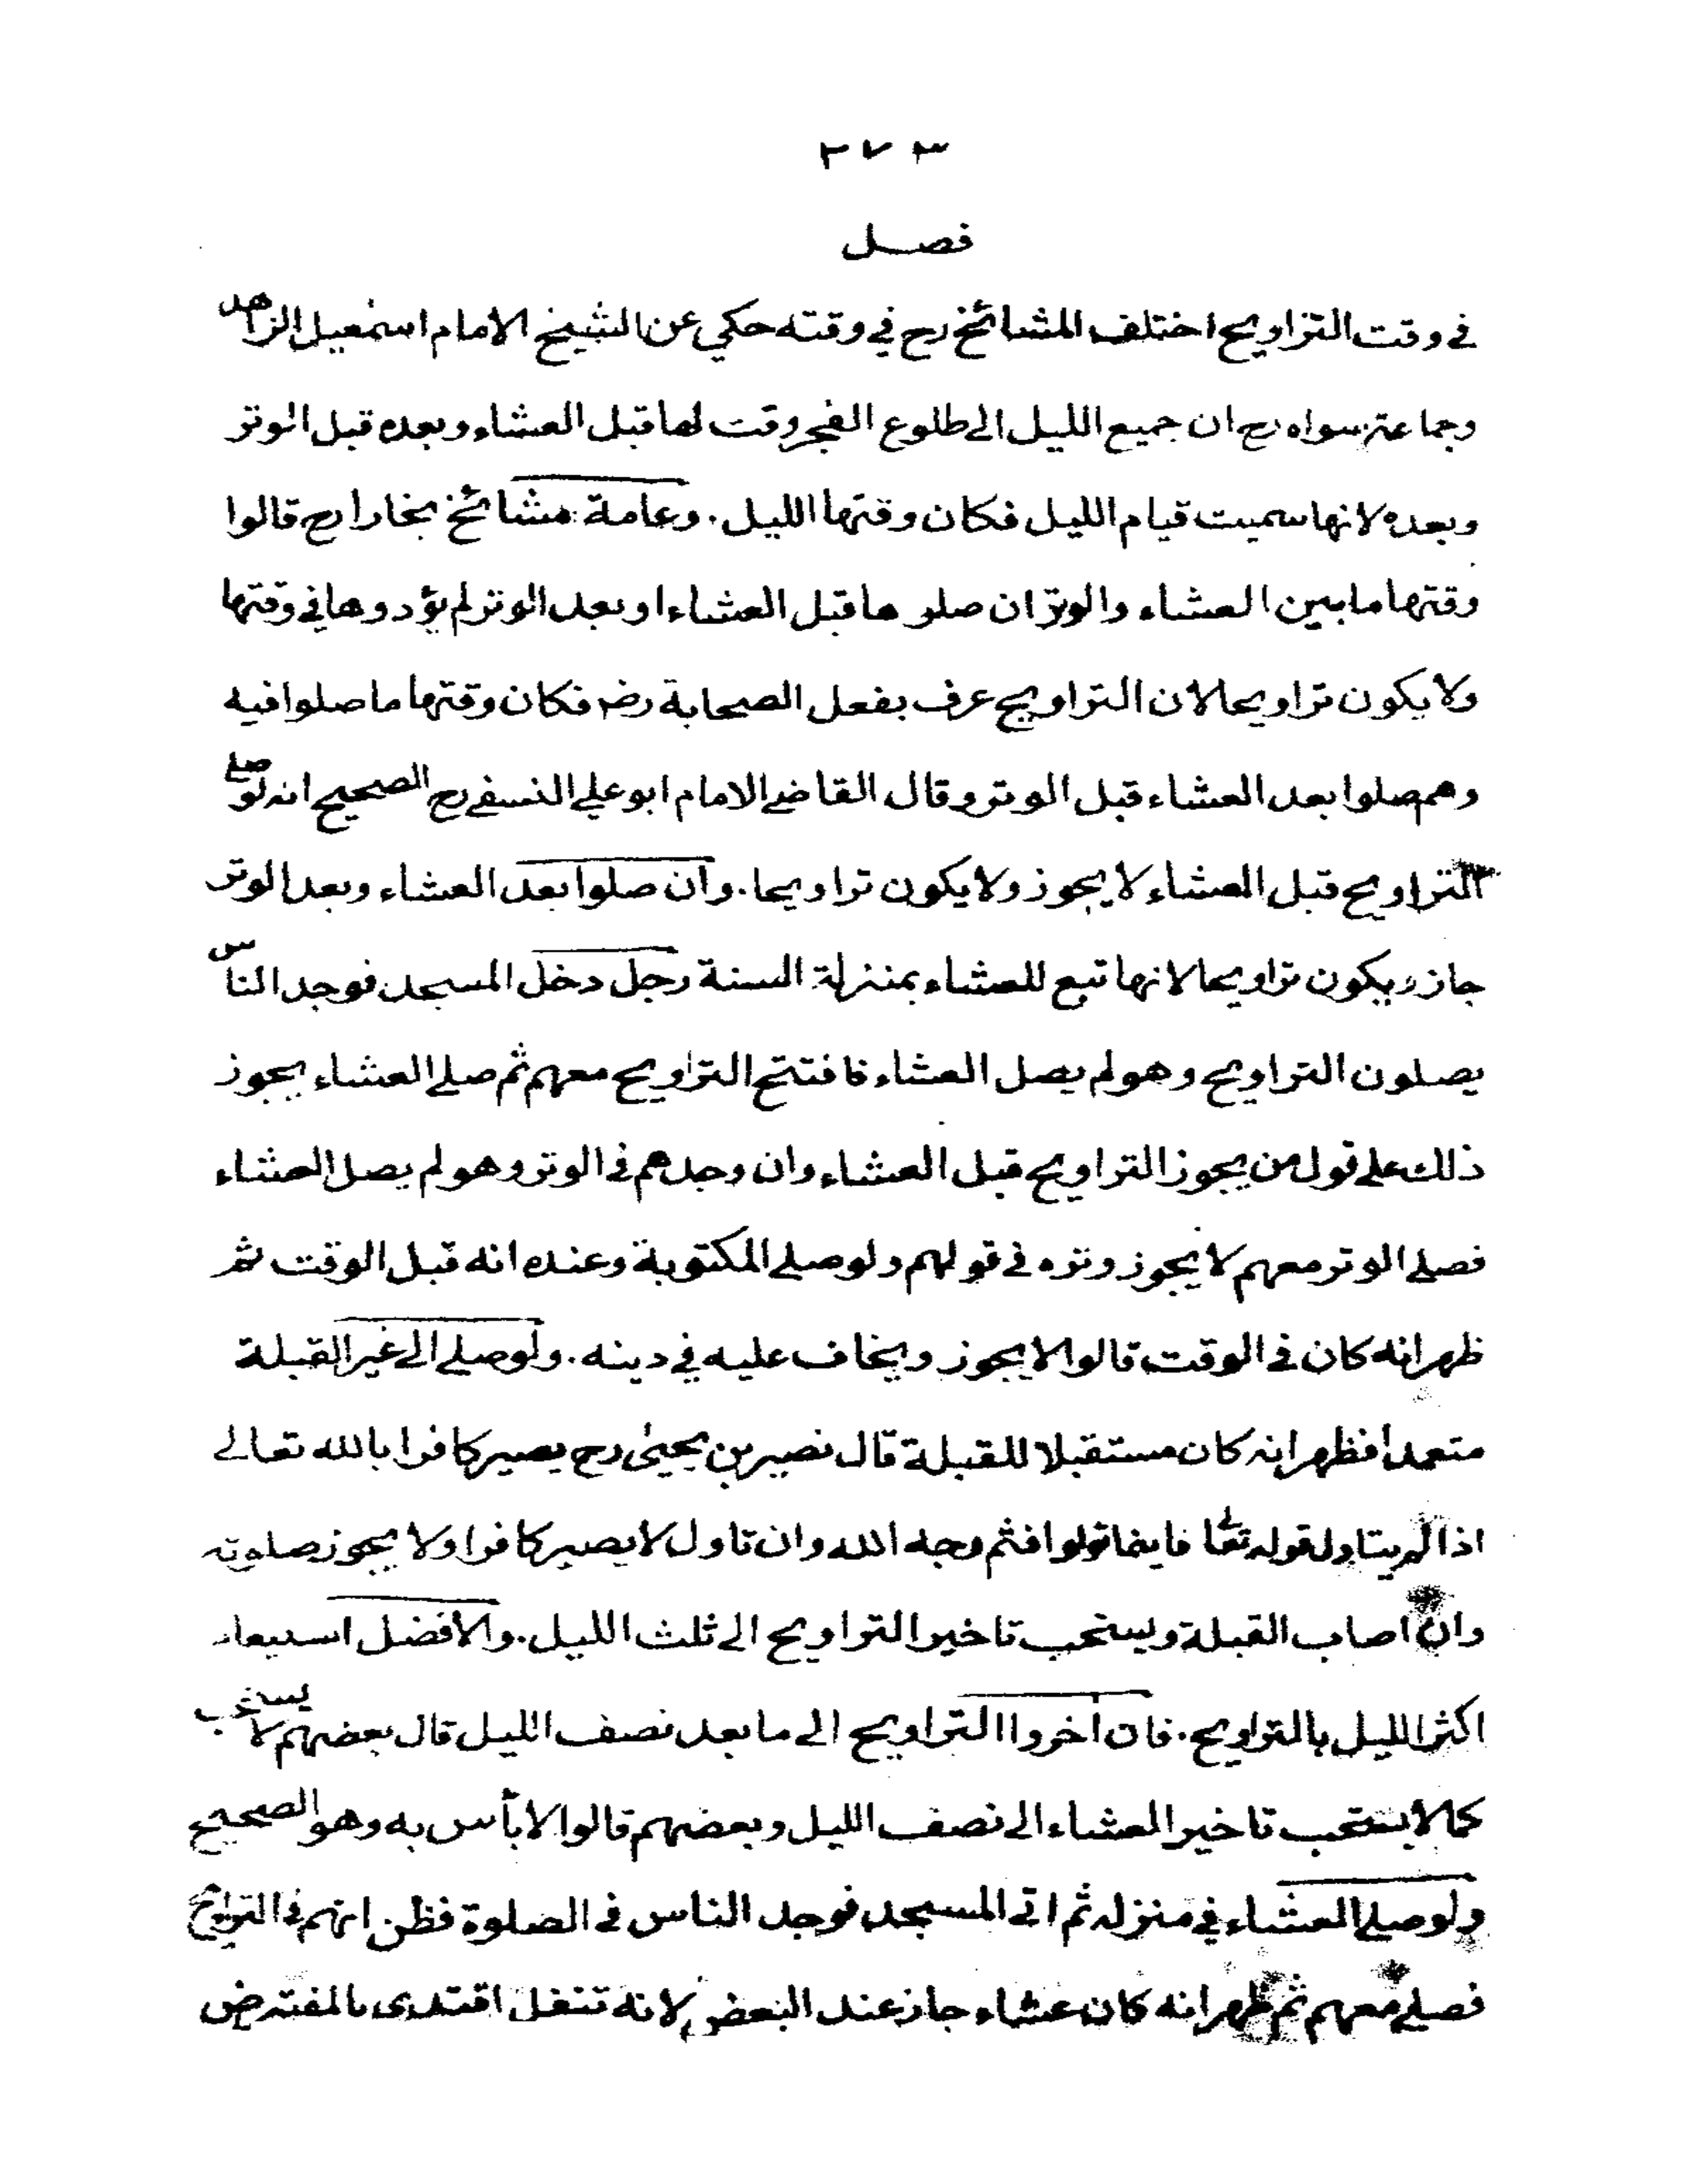 ٢٧٣
فصل
في وقت التراويح اختلف المشائخ رح في وقته حكي عن الشيخ الامام اسمٰعيل الزاهد
وجماعة سواه رح ان جميع الليل الى طلوع الفجر وقت لها قبل العشاء وبعده قبل الوتر
وبعده لانها سميت قيام الليل فكان وقتها الليل. وعامة مشائخ بخارا رح قالوا
وقتها ما بين العشاء والوتر ان صلوها قبل العشاء او بعد الوتر لم يؤدوها في وقتها
ولا يكون تراويحا لان التراويح عرف بفعل الصحابة رضـ فكان وقتها ما صلوا فيه
وهم صلوا بعد العشاء قبل الوتر وقال القاضي الامام ابو علي النسفي رح الصحيح انه لو صلى
التراويح قبل العشاء لا يجوز ولا يكون تراويحا. وان صلوا بعد العشاء وبعد الوتر
جاز ويكون تراويحا لانها تبع للعشاء بمنزلة السنة رجل دخل المسجد فوجد الناس
يصلون التراويح وهو لم يصل العشاء فافتتح التراويح معهم ثم صلى العشاء يجوز
ذلك على قول من يجوز التراويح قبل العشاء وان وجدهم في الوتر وهو لم يصل العشاء
فصلى الوتر معهم لا يجوز وتره في قولهم ولو صلى المكتوبة وعنده انه قبل الوقت ثم
ظهر انه كان في الوقت قالوا لا يجوز ويخاف عليه في دينه. ولو صلى الى غير القبلة
متعمدا فظهر انه كان مستقبلا للقبلة قال نصير بن يحيىٰ رح يصير كافرا بالله تعالى
اذا لم يتاول قوله تعا فاينما تولوا فثم وجه الله وان تاول لا يصير كافرا ولا يجوز صلوته
وان اصاب القبلة ويستحب تاخير التراويح الى ثلث الليل. والافضل استيعاب
اكثر الليل بالتراويح. فان أخروا التراويح الى ما بعد نصف الليل قال بعضهم لا يستحب
كما لا يستحب تاخير العشاء الى نصف الليل وبعضهم قالوا لا بأس به وهو الصحيح
ولو صلى العشاء في منزله ثم اتى المسجد فوجد الناس في الصلوة فظن انهم في التراويح
فصلى معهم ثم ظهر انه كان عشاء جاز عند البعض لانه تنفل اقتدى بالمفترض